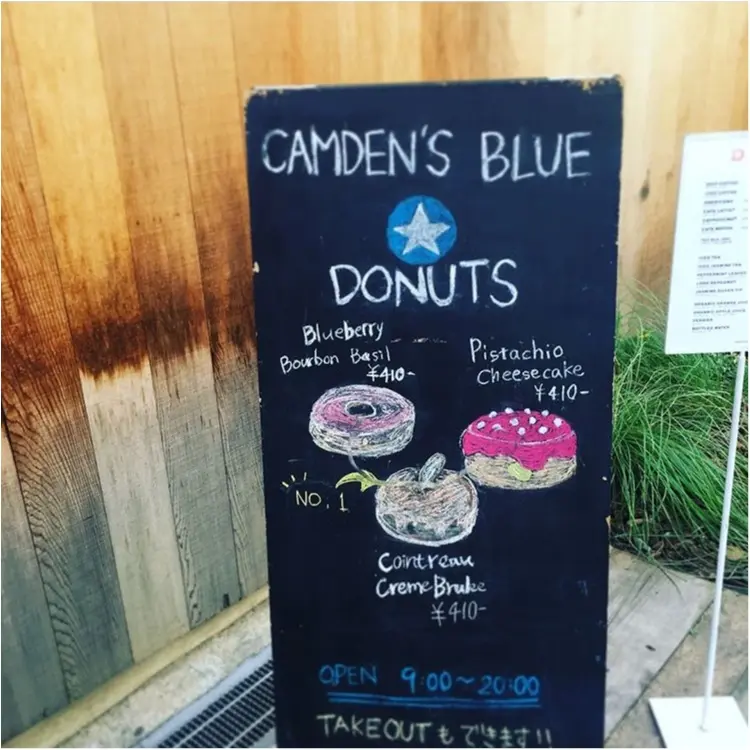 CAMDEN'S BLUE
DONUTS
Blueberry
Bourbon Basil
¥410-
Pistachio
Cheesecake
¥410-
NO.1
Cointreau
Creme Brulee
¥410-
OPEN 9:00~20:00
TAKEOUTもできます!!
ICED TEA
BOTTLED WATER